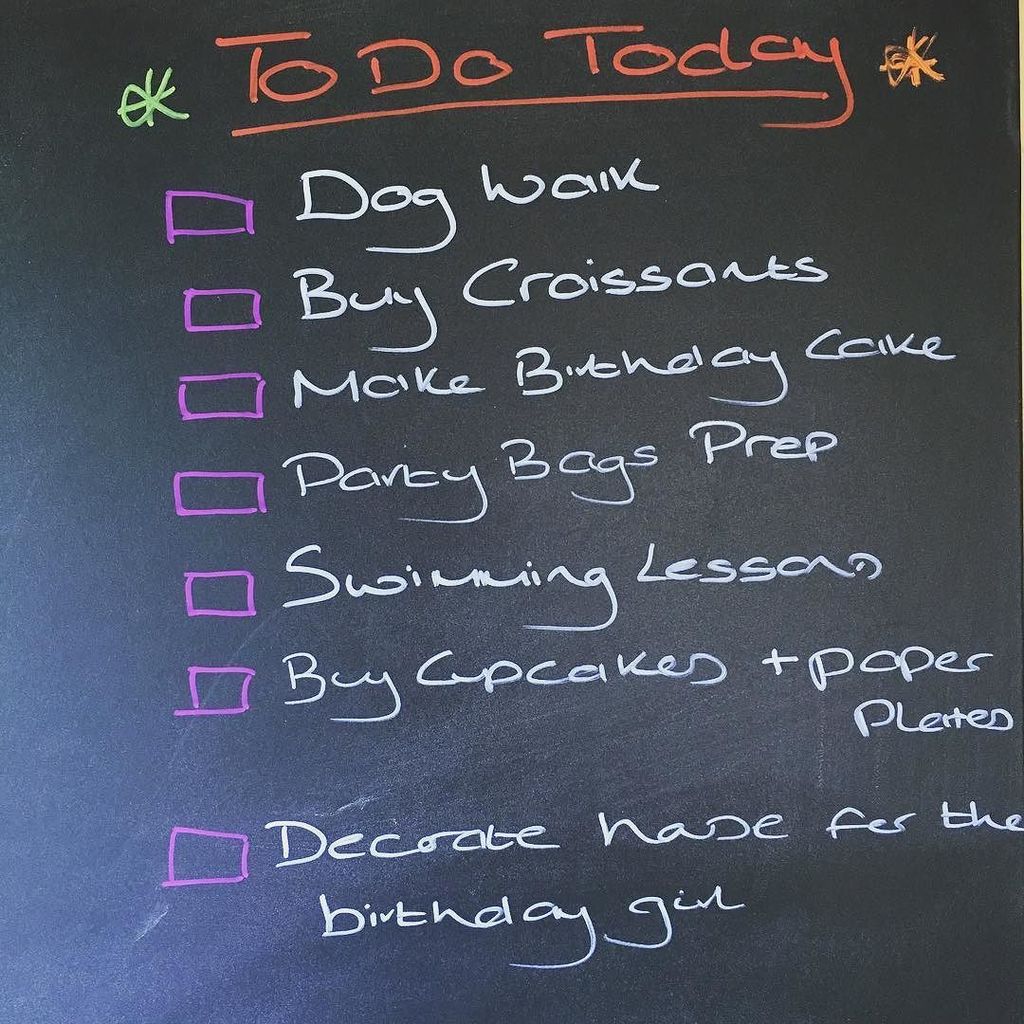 To Do Today
Dog Walk
Buy Croissants
Make Birthday Cake
Party Bags Prep
Swimming Lessons
Buy Cupcakes + paper
Plates
Decorate house for the
birthday girl